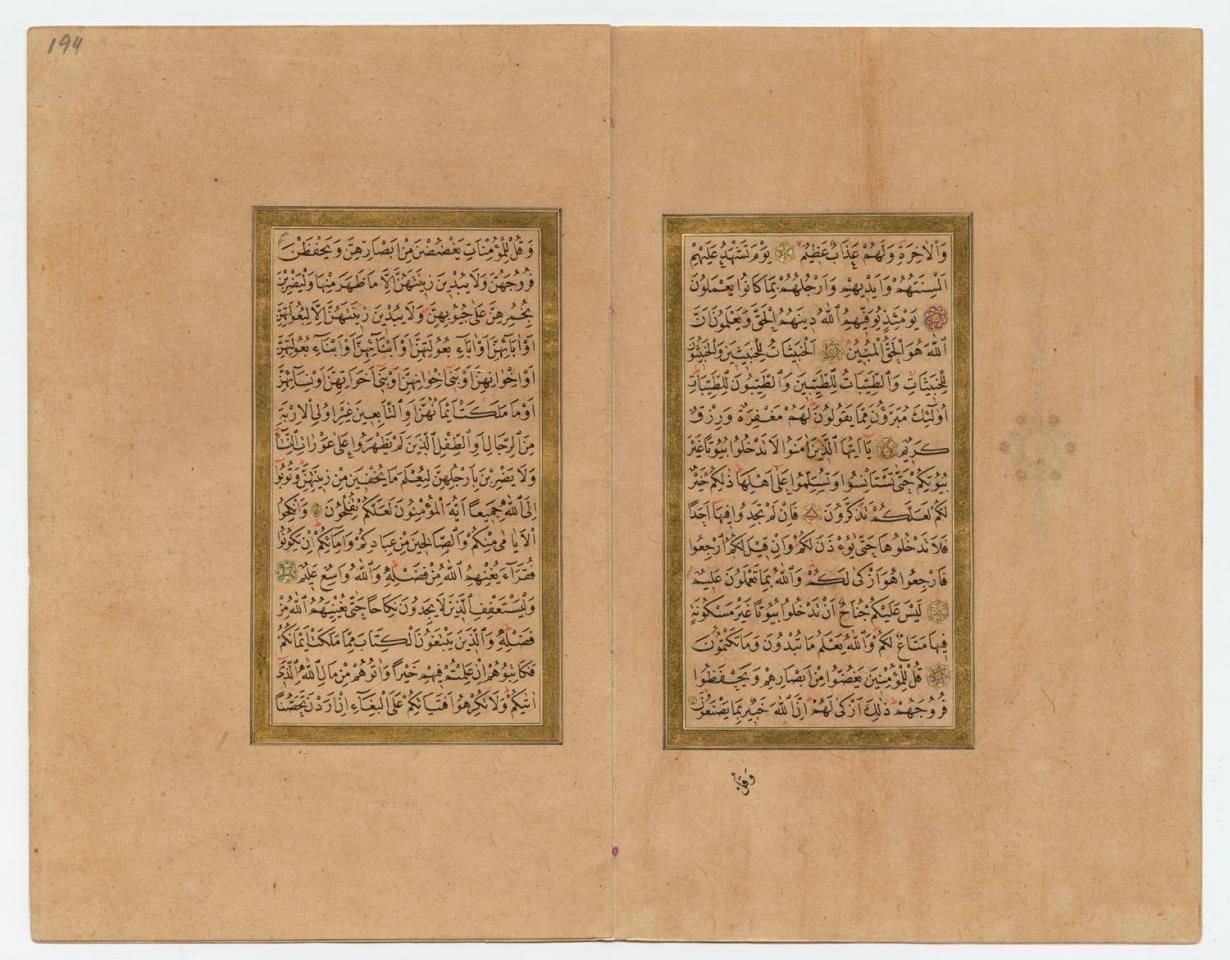 وَالْاٰخِرَةِ وَلَهُمْ عَذَابٌ عَظِيمٌ يَوْمَ تَشْهَدُ عَلَيْهِمْ
اَلْسِنَتُهُمْ وَاَيْدِيهِمْ وَاَرْجُلُهُمْ بِمَا كَانُوا يَعْمَلُونَ
يَوْمَئِذٍ يُوَفِّيهِمُ اللّٰهُ دِينَهُمُ الْحَقَّ وَيَعْلَمُونَ اَنَّ
اللّٰهَ هُوَ الْحَقُّ الْمُبِينُ اَلْخَبِيثَاتُ لِلْخَبِيثِينَ وَالْخَبِيثُونَ
لِلْخَبِيثَاتِ وَالطَّيِّبَاتُ لِلطَّيِّبِينَ وَالطَّيِّبُونَ لِلطَّيِّبَاتِ
اُولٰئِكَ مُبَرَّؤُنَ مِمَّا يَقُولُونَ لَهُمْ مَغْفِرَةٌ وَرِزْقٌ
كَرِيمٌ يَا اَيُّهَا الَّذِينَ اٰمَنُوا لَا تَدْخُلُوا بُيُوتًا غَيْرَ
بُيُوتِكُمْ حَتّٰى تَسْتَاْنِسُوا وَتُسَلِّمُوا عَلٰى اَهْلِهَا ذٰلِكُمْ خَيْرٌ
لَكُمْ لَعَلَّكُمْ تَذَكَّرُونَ فَاِنْ لَمْ تَجِدُوا فِيهَا اَحَدًا
فَلَا تَدْخُلُوهَا حَتّٰى يُؤْذَنَ لَكُمْ وَاِنْ قِيلَ لَكُمُ ارْجِعُوا
فَارْجِعُوا هُوَ اَزْكٰى لَكُمْ وَاللّٰهُ بِمَا تَعْمَلُونَ عَلِيمٌ
لَيْسَ عَلَيْكُمْ جُنَاحٌ اَنْ تَدْخُلُوا بُيُوتًا غَيْرَ مَسْكُونَةٍ
فِيهَا مَتَاعٌ لَكُمْ وَاللّٰهُ يَعْلَمُ مَا تُبْدُونَ وَمَا تَكْتُمُونَ
قُلْ لِلْمُؤْمِنِينَ يَغُضُّوا مِنْ اَبْصَارِهِمْ وَيَحْفَظُوا
فُرُوجَهُمْ ذٰلِكَ اَزْكٰى لَهُمْ اِنَّ اللّٰهَ خَبِيرٌ بِمَا يَصْنَعُونَ
وَقُلْ
194
وَقُلْ لِلْمُؤْمِنَاتِ يَغْضُضْنَ مِنْ اَبْصَارِهِنَّ وَيَحْفَظْنَ
فُرُوجَهُنَّ وَلَا يُبْدِينَ زِينَتَهُنَّ اِلَّا مَا ظَهَرَ مِنْهَا وَلْيَضْرِبْنَ
بِخُمُرِهِنَّ عَلٰى جُيُوبِهِنَّ وَلَا يُبْدِينَ زِينَتَهُنَّ اِلَّا لِبُعُولَتِهِنَّ
اَوْ اٰبَائِهِنَّ اَوْ اٰبَاءِ بُعُولَتِهِنَّ اَوْ اَبْنَائِهِنَّ اَوْ اَبْنَاءِ بُعُولَتِهِنَّ
اَوْ اِخْوَانِهِنَّ اَوْ بَنِي اِخْوَانِهِنَّ اَوْ بَنِي اَخَوَاتِهِنَّ اَوْ نِسَائِهِنَّ
اَوْ مَا مَلَكَتْ اَيْمَانُهُنَّ اَوِ التَّابِعِينَ غَيْرِ اُولِي الْاِرْبَةِ
مِنَ الرِّجَالِ اَوِ الطِّفْلِ الَّذِينَ لَمْ يَظْهَرُوا عَلٰى عَوْرَاتِ النِّسَاءِ
وَلَا يَضْرِبْنَ بِاَرْجُلِهِنَّ لِيُعْلَمَ مَا يُخْفِينَ مِنْ زِينَتِهِنَّ وَتُوبُوا
اِلَى اللّٰهِ جَمِيعًا اَيُّهَ الْمُؤْمِنُونَ لَعَلَّكُمْ تُفْلِحُونَ وَاَنْكِحُوا
الْاَيَامٰى مِنْكُمْ وَالصَّالِحِينَ مِنْ عِبَادِكُمْ وَاِمَائِكُمْ اِنْ يَكُونُوا
فُقَرَاءَ يُغْنِهِمُ اللّٰهُ مِنْ فَضْلِهِ وَاللّٰهُ وَاسِعٌ عَلِيمٌ
وَلْيَسْتَعْفِفِ الَّذِينَ لَا يَجِدُونَ نِكَاحًا حَتّٰى يُغْنِيَهُمُ اللّٰهُ مِنْ
فَضْلِهِ وَالَّذِينَ يَبْتَغُونَ الْكِتَابَ مِمَّا مَلَكَتْ اَيْمَانُكُمْ
فَكَاتِبُوهُمْ اِنْ عَلِمْتُمْ فِيهِمْ خَيْرًا وَاٰتُوهُمْ مِنْ مَالِ اللّٰهِ الَّذِي
اٰتٰيكُمْ وَلَا تُكْرِهُوا فَتَيَاتِكُمْ عَلَى الْبِغَاءِ اِنْ اَرَدْنَ تَحَصُّنًا